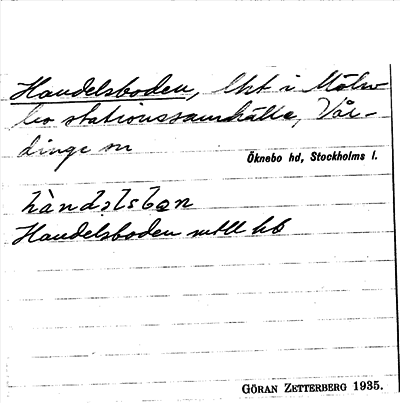 Handelsboden, lht i Möln
bo stationssamhälle, Vår-
dinge sn
Öknebo hd, Stockholms l.
hàndəlsbon
Handelsboden mtll hb
GÖRAN ZETTERBERG 1935.